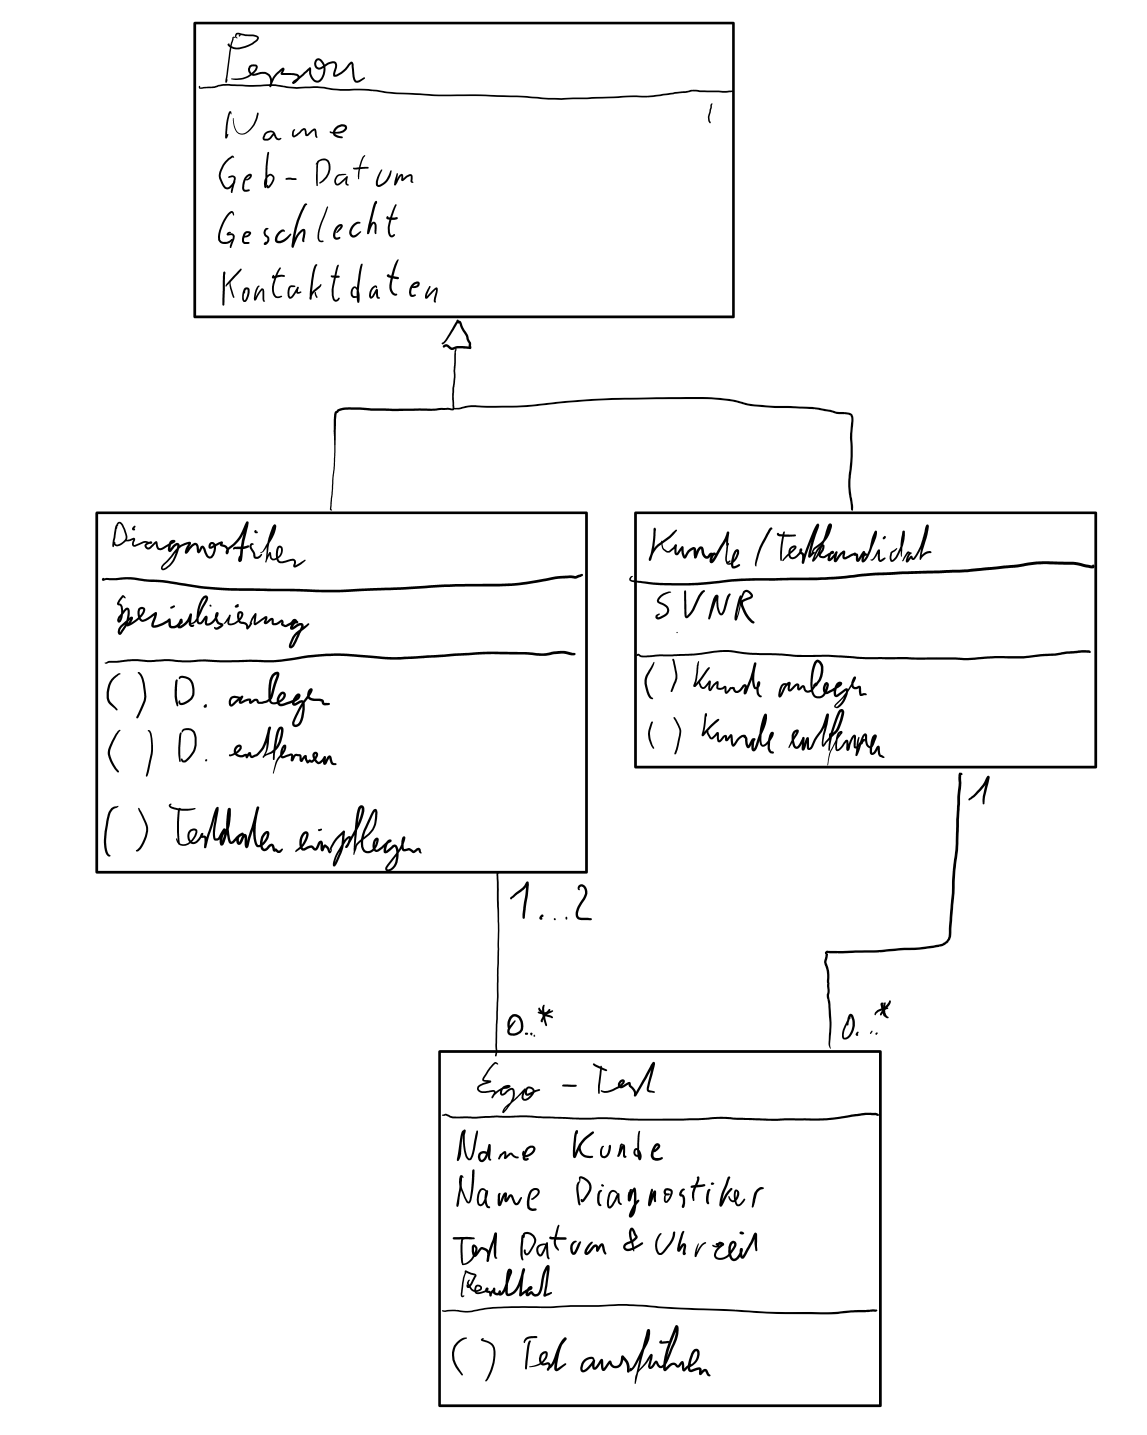 Person
Name
Geb-Datum
Geschlecht
Kontaktdaten
Diagnostiker
Spezialisierung
( ) D. anlegen
( ) D. entfernen
( ) Testdaten einpflegen
Kunde/Testkandidat
SVNR
( ) Kunde anlegen
( ) Kunde entfernen
1
1...2
0..*
0...*
Ergo - Test
Name Kunde
Name Diagnostiker
Test Datum & Uhrzeit
Resultat
( ) Test ausführen